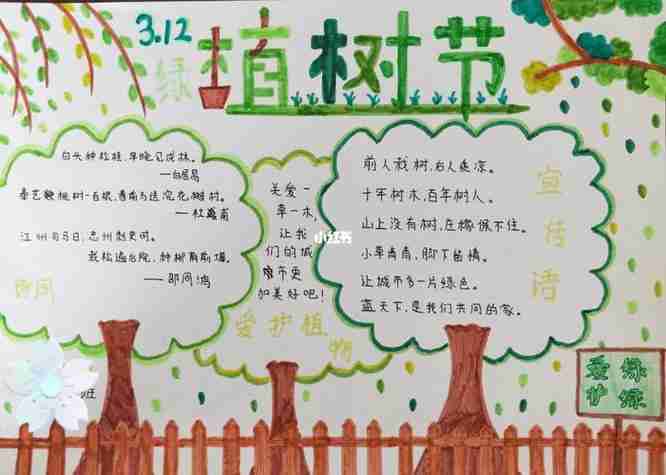 3.12
绿
植树节
白头种松桂,早晚见成林。
——白居易
奉乞桃栽一百根,春前为送浣花村。
江州司马日,忠州刺史时。
栽松遍后院,种柳荫前墀。
诗词
关爱一
草一木,
让我
们的城
市更
加美好吧!
爱护植物
小红书
前人栽树,后人乘凉。
十年树木,百年树人。
山上没有树,庄稼保不住。
小草青青,脚下留情。
让城市多一片绿色。
蓝天下,是我们共同的家。
宣传语
爱绿
护绿
班